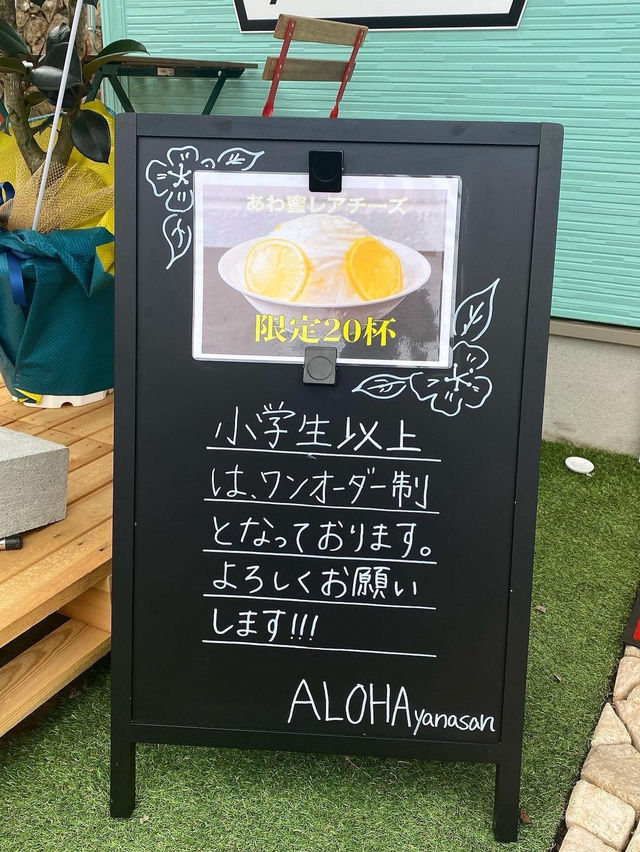 あわ蜜レアチーズ
限定20杯
小学生以上
は、ワンオーダー制
となっております。
よろしくお願い
します!!!
ALOHAyanasan